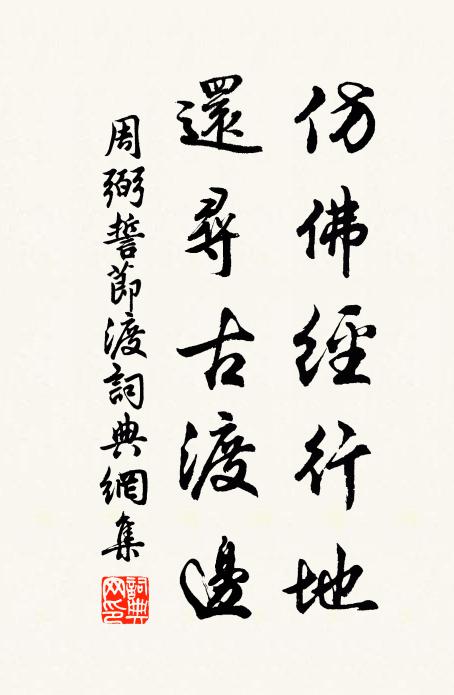 仿佛經行地
還尋古渡邊
周弼誓節渡詞典網集
詞典網印